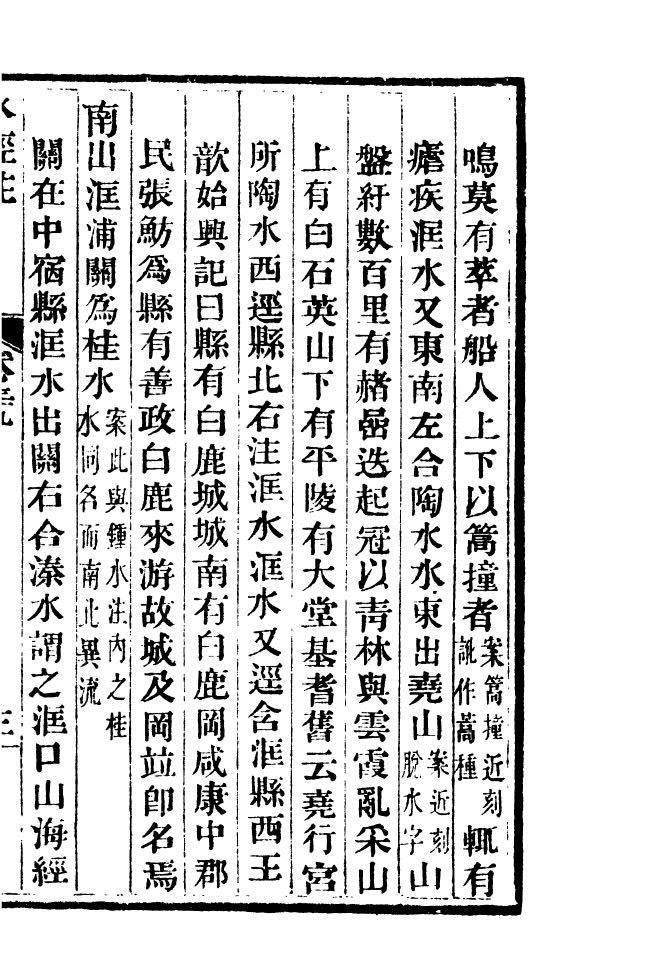 鳴莫有萃者船人上下以篙撞者案篙撞近刻訛作蒿種輒有
瘧疾洭水又東南左合陶水水東出堯山案近刻脫水字山
盤紆數百里有赭嵒迭起冠以青林與雲霞亂采山
上有白石英山下有平陵有大堂基耆舊云堯行宮
所陶水西逕縣北右注洭水洭水又逕含洭縣西王
歆始興記曰縣有白鹿城城南有白鹿岡咸康中郡
民張魴爲縣有善政白鹿來游故城及岡竝卽名焉
南出洭浦關爲桂水案此與鍾水注內之桂水同名而南北異流
關在中宿縣洭水出關右合溱水謂之洭口山海經
水經注